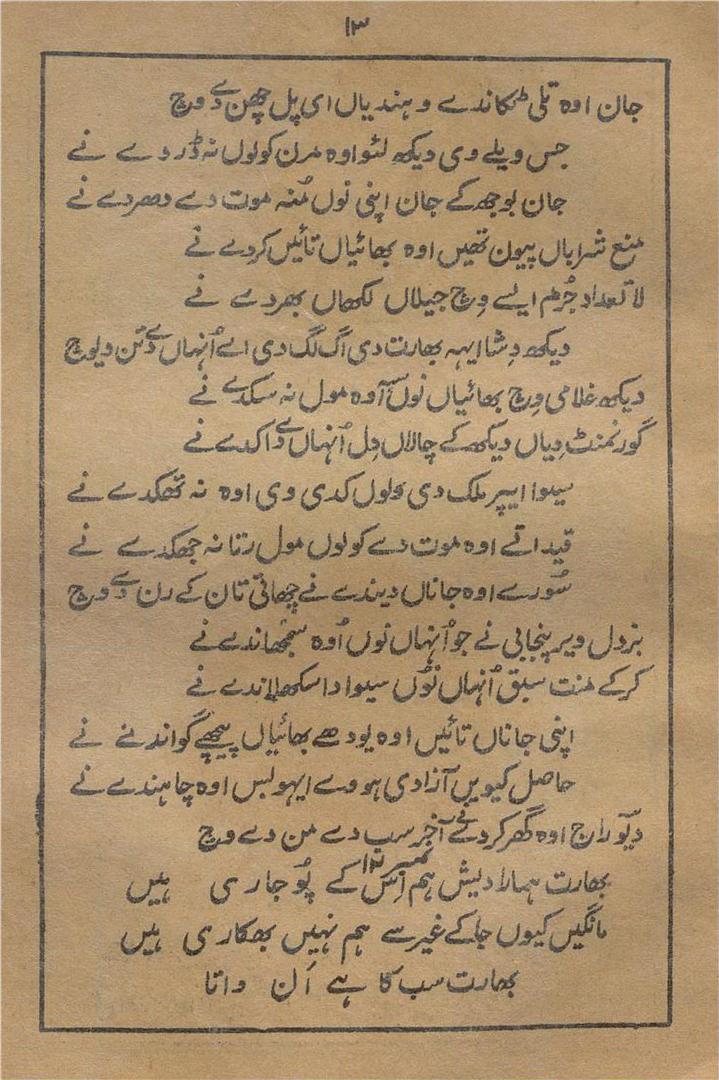 ۱۳
جان اوہ تلی ٹکاندے وہندیاں ای پل چھن دے وچ
جس ویلے وی دیکھ لئو اوہ مرن کولوں نہ ڈردے نے
جان بوجھ کے جان اپنی نوں مُنہ موت دے دھردے نے
منع شراباں پیون تھیں اوہ بھائیاں تائیں کردے نے
لا تعداد جُرم ایسے وِچ جیلاں لکھاں بھردے نے
دیکھ دِشا ایہہ بھارت دی اگ لگ دی اے اُنہاں دے تن دیوچ
دیکھ غلامی وِچ بھائیاں نوں اوہ مول نہ سکدے نے
گورنمنٹ دِیاں دیکھ کے چالاں دِل اُنہاں دے اکدے نے
سیوا ایپر ملک دی ولوں کدی وی اوہ نہ تھکدے نے
قید اتے اوہ موت دے کولوں مول رتا نہ جھکدے نے
سُورے اوہ جاناں دیندے نے چھاتی تان کے رن دے وچ
بزدل ویر پنجابی نے جو اُنہاں نوں اُوہ سمجھاندے نے
کرکے منت سبق اُنہاں نوں سیوا دا سکھلاندے نے
اپنی جاناں تائیں اوہ یودھے بھائیاں پیچھے گواندے نے
حاصل کیویں آزادی ہووے ایہو بس اوہ چاہندے نے
دیوراج اوہ گھر کردے نے آخر سب دے من دے وچ
نمبر ۱۲
بھارت ہمارا دیش ہم اِس کے پُوجاری ہیں
مانگیں کیوں جا کے غیر سے ہم نہیں بھکاری ہیں
بھارت سب کا ہے اَن داتا